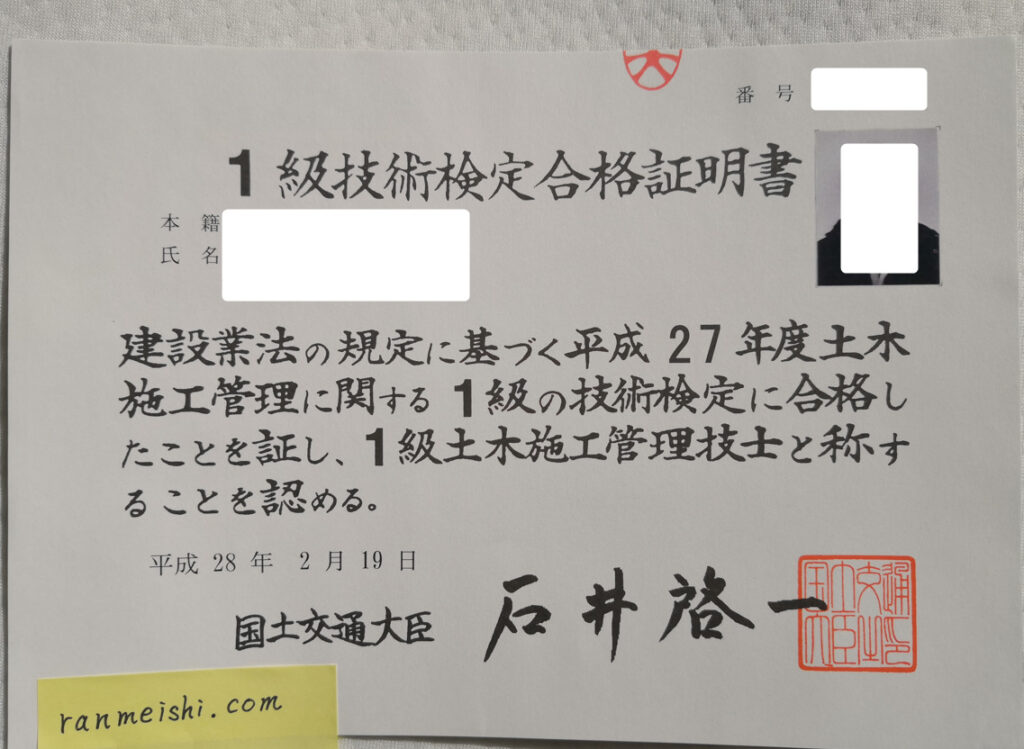 番号
1級技術検定合格証明書
本籍
氏名
建設業法の規定に基づく平成27年度土木
施工管理に関する1級の技術検定に合格し
たことを証し、1級土木施工管理技士と称す
ることを認める。
平成28年2月19日
国土交通大臣 石井啓一
ranmeishi.com